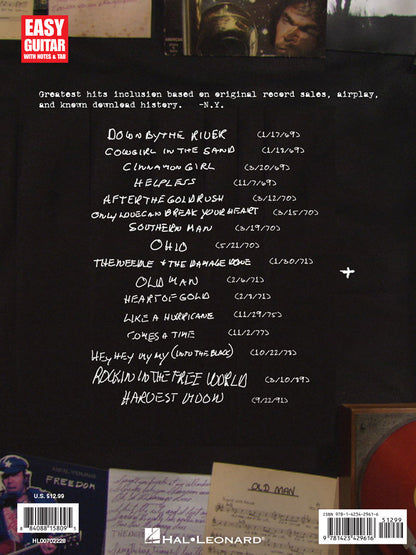 EASY
GUITAR
WITH NOTES & TAB
Greatest hits inclusion based on original record sales, airplay,
and known download history. -N.Y.
DOWN BY THE RIVER (1/17/69)
COWGIRL IN THE SAND (1/18/69)
CINNAMON GIRL (3/20/69)
HELPLESS (11/7/69)
AFTER THE GOLD RUSH (3/12/70)
ONLY LOVE CAN BREAK YOUR HEART (3/15/70)
SOUTHERN MAN (3/19/70)
OHIO (5/21/70)
THE NEEDLE + THE DAMAGE DONE (1/30/71)
OLD MAN (2/6/71)
HEART OF GOLD (2/8/71)
LIKE A HURRICANE (11/29/75)
COMES A TIME (11/2/77)
HEY HEY MY MY (INTO THE BLACK) (10/22/78)
ROCKIN IN THE FREE WORLD (3/10/89)
HARVEST MOON (9/22/91)
NEIL YOUNG
FREEDOM
OLD MAN
U.S. $12.99
8 84088 15809 5
HL00702228
HAL•LEONARD®
ISBN 978-1-4234-2961-6
51299
9 781423 429616